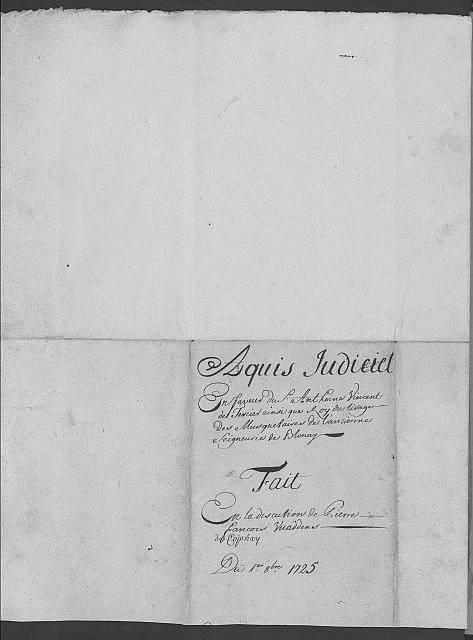 Aquis Judiciel
En faveur du Sr. Anthoine Vincent
de ainsi que Roy du tirage
Des Musquetaires de l'ancienne
Seigneurie de Blonay
Fait
En la discution de Pierre
francois Vuaddens
de
Du 1er 8bre 1725